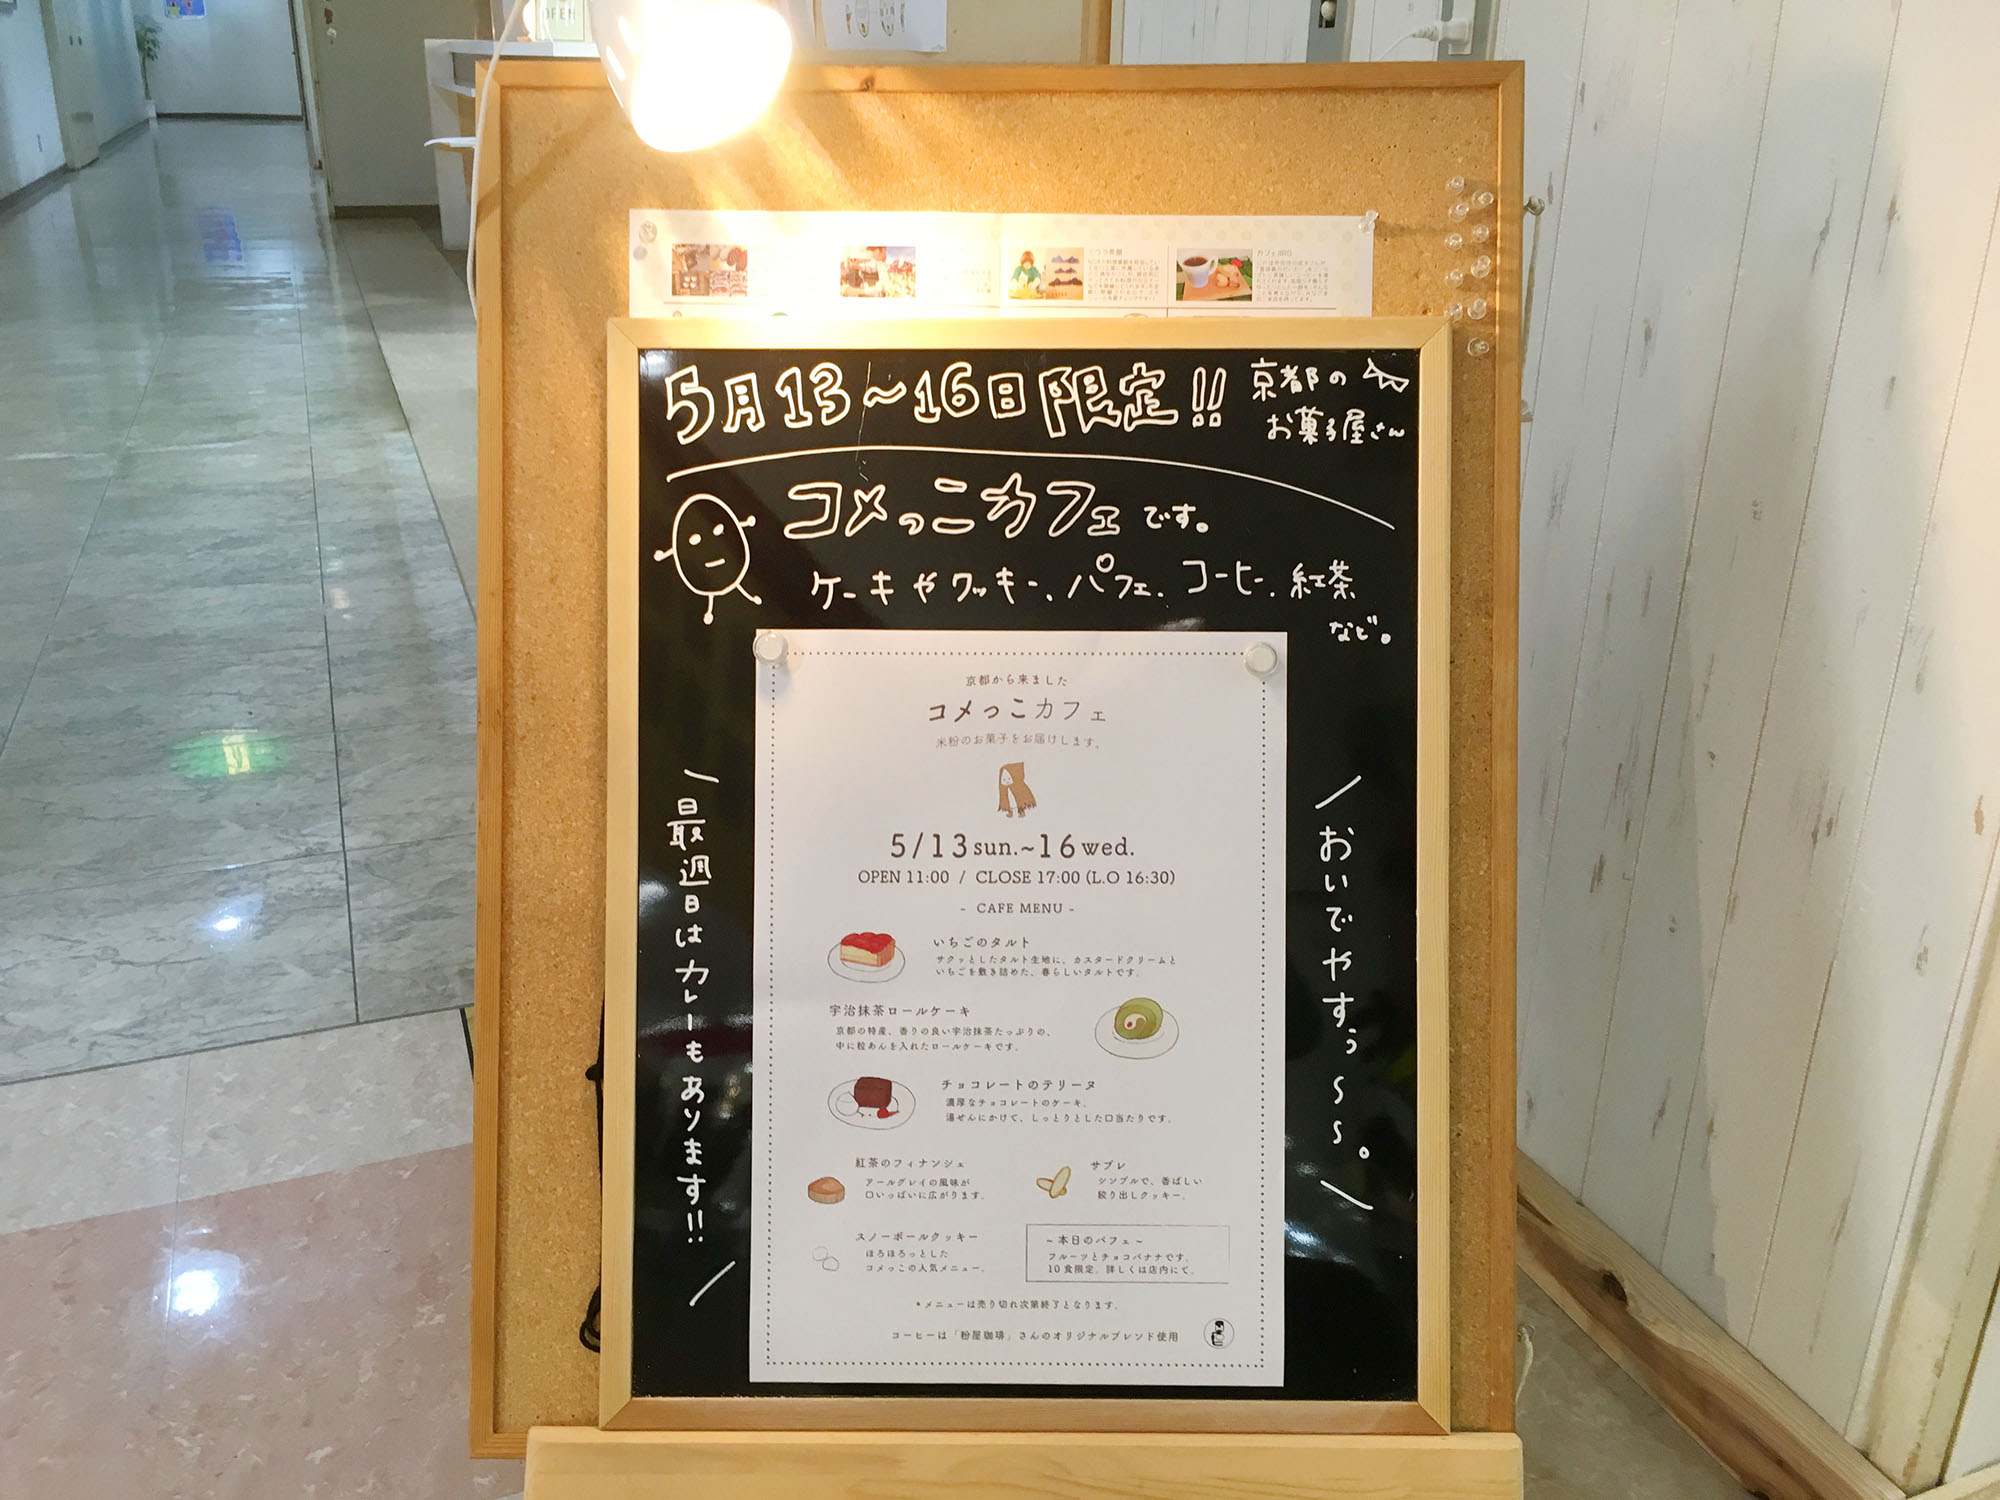 OPEN
カフェ日和
5月13〜16日限定!!
京都の
お菓子屋さん
コメっこカフェです。
ケーキやクッキー、パフェ、コーヒー、紅茶
など。
最週日はカレーもあります!!
おいでやすぅ〜〜。
京都から来ました
コメっこカフェ
米粉のお菓子をお届けします。
5/13 sun.~16 wed.
OPEN 11:00 / CLOSE 17:00 (L.O 16:30)
- CAFE MENU -
いちごのタルト
サクッとしたタルト生地に、カスタードクリームと
いちごを敷き詰めた、春らしいタルトです。
宇治抹茶ロールケーキ
京都の特産、香りの良い宇治抹茶たっぷりの、
中に粒あんを入れたロールケーキです。
チョコレートのテリーヌ
濃厚なチョコレートのケーキ。
湯せんにかけて、しっとりとした口当たりです。
紅茶のフィナンシェ
アールグレイの風味が
口いっぱいに広がります。
サブレ
シンプルで、香ばしい
絞り出しクッキー。
スノーボールクッキー
ほろほろっとした
コメっこの人気メニュー。
~ 本日のパフェ ~
フルーツとチョコバナナです。
10食限定。詳しくは店内にて。
*メニューは売り切れ次第終了となります。
コーヒーは「粉屋珈琲」さんのオリジナルブレンド使用